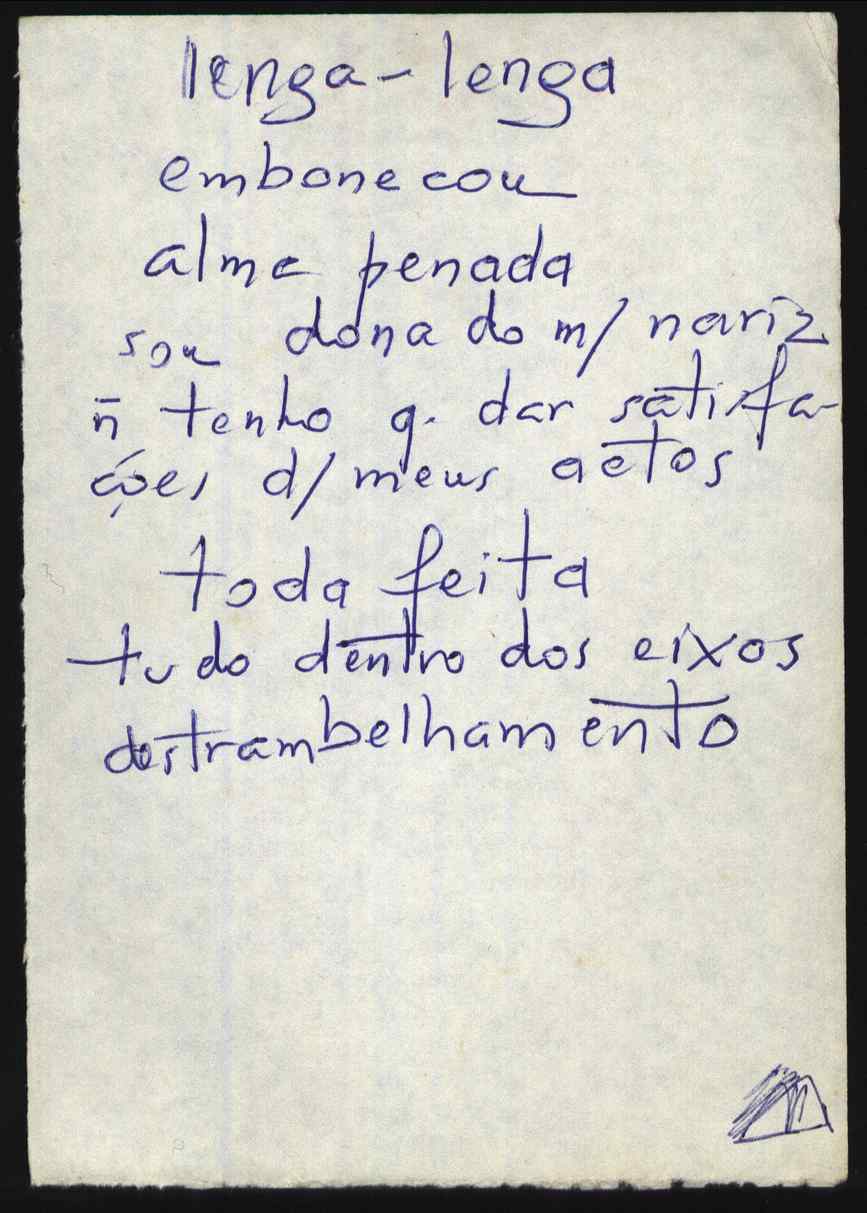 lenga-lenga
embonecou
alma penada
sou dona do m/ nariz
ñ tenho q. dar satisfa-
ções d/ meus actos
toda feita
tudo dentro dos eixos
destrambelhamento